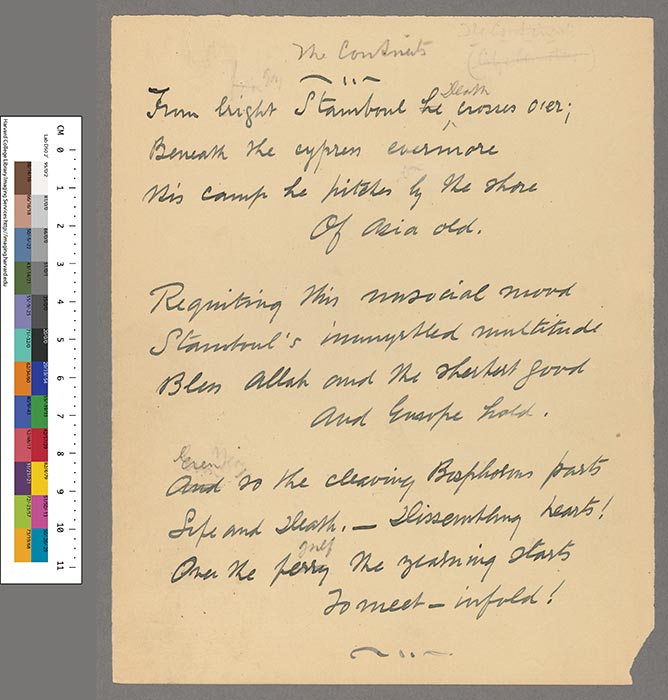 The Continents
From bright Stamboul he Death crosses o'er;
Beneath the cypress evermore
His camp he pitches by the shore
Of Asia old.
Requiting this unsocial mood
Stamboul's inmyrtled multitude
Bless Allah and the sherbert good
And Europe hold.
Even
And so the cleaving Bosphorus parts
Life and Death. — Dissembling hearts!
gulf
Over the ferry the yearning starts
To meet — infold!
CM 0 1 2 3 4 5 6 7 8 9 10 11
Harvard College Library Imaging Services